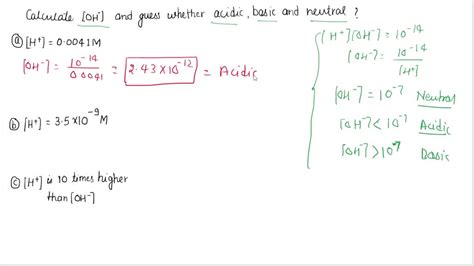 Calculate [OH⁻] and guess whether acidic, basic and neutral ?
(a) [H⁺] = 0.0041M
[OH⁻] = 10⁻¹⁴ / 0.0041 = 2.43 × 10⁻¹² = Acidic
(b) [H⁺] = 3.5 × 10⁻⁹ M
(c) [H⁺] is 10 times higher
than [OH⁻]
[H⁺][OH⁻] = 10⁻¹⁴
[OH⁻] = 10⁻¹⁴ / [H⁺]
[OH⁻] = 10⁻⁷ Neutral
[OH⁻] < 10⁻⁷ Acidic
[OH⁻] > 10⁻⁷ Basic